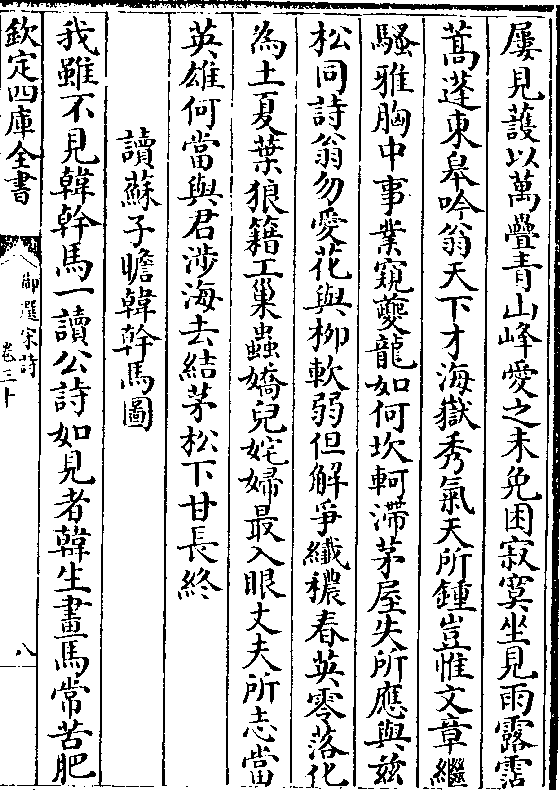 屢見護以萬疊青山峰愛之未免困寂寞坐見雨露霑
蒿蓬東皋吟翁天下才海嶽秀氣天所鍾豈惟文章繼
騷雅胸中事業窺夔龍如何坎軻滯茅屋失所應與兹
松同詩翁勿愛花與柳軟弱但解爭纖穠春英零落化
為土夏葉狼籍工巢蟲嬌兒姹婦最入眼丈夫所志當
英雄何當與君涉海去結茅松下甘長終
讀蘇子瞻韓幹馬圖
我雖不見韓幹馬一讀公詩如見者韓生畫馬常苦肥
欽定四庫全書
御選宋詩
卷三十
八